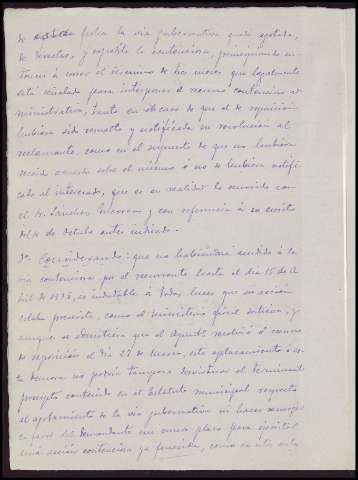 de esta fecha la via gubernativa queda agotada,
de derecho, y expedita la contenciosa, principiando en-
tonces á correr el término de tres meses que legalmente
está señalado para interponer el recurso contencioso ad-
ministrativo, tanto en el caso de que el de reposición
hubiera sido resuelto y notificada su resolución al
reclamante, como en el supuesto de que no hubiera
recaido acuerdo sobre el mismo ó no se hubiera notifi-
cado al interesado, que es en realidad lo ocurrido con
el Sr. Sánchez y con referencia á su escrito
de de Octubre antes indicado.
Considerando: que no habiendose acudido á la
via contenciosa por el recurrente hasta el dia 15 de A-
bril de 1935, es indudable á todas luces que su acción
estaba prescrita, como el Ministerio fiscal sostiene, y
aunque se admitiera que el Ayunt.º resolvió el recurso
de reposición el dia 22 de Enero, este aplazamiento ó es-
ta demora no podria tampoco desvirtuar el terminante
precepto contenido en el Estatuto municipal respecto
al agotamiento de la via gubernativa ni hacer renacer
en favor del demandante un nuevo plazo para ejercitar
una acción contenciosa ya fenecida, como en esta